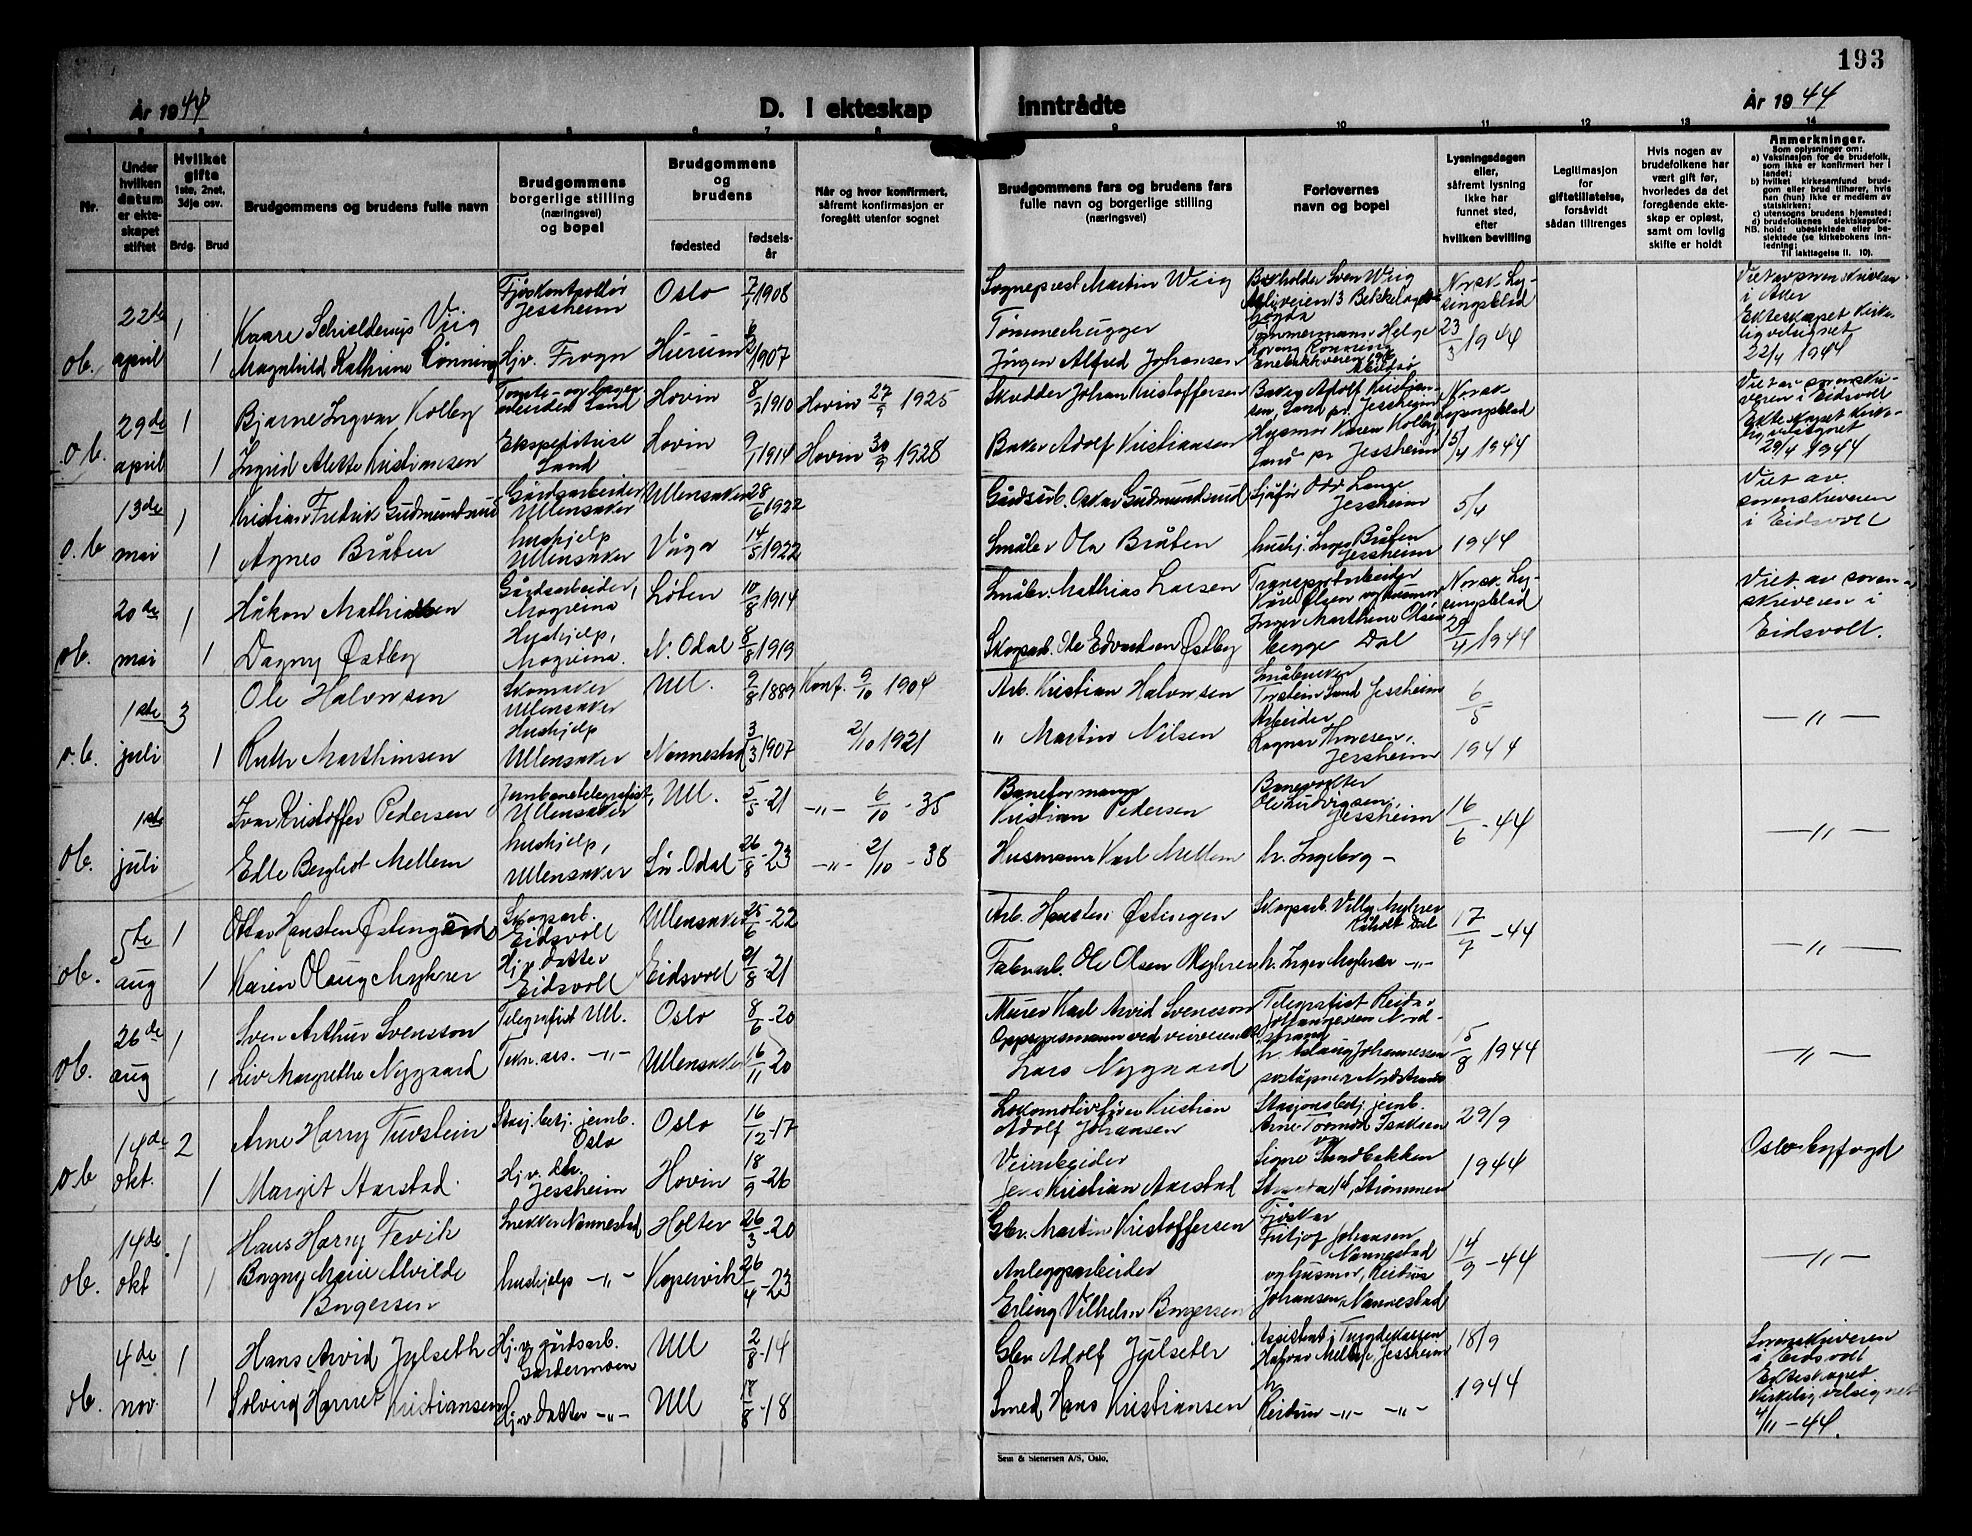 193
År 1944
D. I ekteskap
inntrådte
År 1944
1 2 3 4 5 6 7 8 9 10 11 12 13 14
Nr.
Under hvilken datum er ekteskapet stiftet
Hvilket gifte 1ste, 2net, 3dje osv.
Brdg. Brud
Brudgommens og brudens fulle navn
Brudgommens borgerlige stilling (næringsvei) og bopel
Brudgommens og brudens
fødested
fødselsår
Når og hvor konfirmert, såfremt konfirmasjon er foregått utenfor sognet
Brudgommens fars og brudens fars fulle navn og borgerlige stilling (næringsvei)
Forlovernes navn og bopel
Lysningsdagen eller, såfremt lysning ikke har funnet sted, efter hvilken bevilling
Legitimasjon for giftetillatelse, forsåvidt sådan tiltrenges
Hvis nogen av brudefolkene har vært gift før, hvorledes da det foregående ekteskap er opløst, samt om lovlig skifte er holdt
Anmerkninger.
Som oplysninger om:
a) Vaksinasjon for de brudefolk, som ikke er konfirmert her i landet;
b) hvilket kirkesamfund brudgom eller brud tilhører, hvis han (hun) ikke er medlem av statskirken;
c) utensogns brudens hjemsted;
d) brudefolkenes slektskapsforhold: ubeslektede eller beslektede (se kirkebokens innledning;
NB.
Til iakttagelse II. 10).
ob. 22de april 1 Kaare Schielderup Viig Fjøskontrollør Jessheim Oslo 7/7 1908 Sogneprest Martin Wiig Bokholder Sven Wiig Norsk Lysingsblad 23/3 1944
1 Magnhild Kathrine Rønning Hjv. Frogn Hurum 6/2 1907 Tømmerhugger Jørgen Alfred Johansen Tømmermann Helge
Ekteskapet kirkelig velsignet 22/4 1944
ob. 29de april 1 Bjarne Ingvar Kolby Tomte- og lagerarbeider Sand Hovin 8/2 1910 Hovin 27/9 1925 Skredder Johan Kristoffersen Baker Adolf Kristiansen, Sand pr. Jessheim Norsk Lysingsblad 15/4 1944 Viet av sorenskriveren i Eidsvoll
1 Ingrid Alette Kristiansen Ekspeditrise Sand Hovin 9/1 1914 Hovin 30/9 1928 Baker Adolf Kristiansen Husmor Karen Kolby Sand pr. Jessheim Ekteskapet kirkelig velsignet 29/4 1944
o.b 13de mai 1 Kristian Fredrik Gudmundsrud Gårdsarbeider Ullensaker Ullensaker 28/6 1922 Gårdsarb. Oskar Gudmundsrud Sjåfør Odd Lange Jessheim 5/4 1944 Viet av sorenskriveren i Eidsvoll
1 Agnes Bråten hushjelp Ullensaker Våga 14/5 1922 Småbr. Ola Bråten hushj. Inga Bråten Jessheim
ob. 20de mai 1 Håkon Mathisen Gårdsarbeider, Mogreina Løten 10/8 1914 Småbr. Mathias Larsen Transportarbeider Kåre Olsen og husmor Inger Marthene Olsen begge Dal Norsk Lysingsblad 29/4 1944 Viet av sorenskriveren i Eidsvoll.
1 Dagny Østby Hushjelp, Mogreina. N. Odal 8/8 1919 Skogsarb. Ole Edvardsen Østby
o.b. 1ste juli 3 Ole Halvorsen Skomaker Ullensaker Ull. 9/8 1889 Konf. 9/10 1904 Arb. Kristian Halvorsen Småbruker Torstein Sand Jessheim 6/5 1944 — " —
1 Ruth Marthinsen Hushjelp Ullensaker Nannestad 3/3 1907 2/10 1921 " Martin Nilsen Arbeider Ragnar Thoresen, Jessheim
ob. 1ste juli Ivar Kristoffer Pedersen Jernbanetelegrafist, Ullensaker Ull. 5/5-21 -"- 6/10-35 Baneformann Kristian Pedersen Banevokter Ole Ludvigsen, Jessheim 16/6-44 — " —
Edle Bergliot Mellem hushjelp, Ullensaker Sør-Odal 26/8-23 -"- 2/10-38 Husmann Karl Mellem fr. Ingeborg -
ob. 5te aug 1 Ottar Hansten Østengård Skogsarb. Eidsvoll Ullensaker 25/6-22 Arb. Hansten Østengen Skogsarb. Villy Myhrer Råholt Dal 17/7-44 — " —
1 Karen Olaug Myhrer Hj.v. datter Eidsvoll Eidsvoll 21/8-21 Fabrarb. Ole Olsen Myhrer fr. Inger Myhrer -"-
ob. 26de aug 1 Sven Arthur Svensson Telegrafist Ull. Oslo 8/6-20 Murer Karl Arvid Svensson Telegrafist Reidar Johannessen Nordstrand 5/8 1944 — " —
1 Liv Margrethe Nygaard Tekn. ass. -"- Ullensaker 16/11-20 Oppsynsmann ved veivesenet Lars Nygaard fr. Aslaug Johannessen
ob 14de okt. 2 Arne Harry Turstein Stasj.betj. jernb. Oslo Oslo 16/12-17 Lokomotivfører Kristian Adolf Johansen Stasjonsbetj. jernb. Arne Tormod Isaksen og 29/9 1944 Oslo byfogd
1 Margit Aarstad. Hj.v. dtr. Jessheim Hovin 18/9-26 Veiarbeider Jens Kristian Aarstad Signe Sandbakken Strømmen
ob. 14de okt 1 Hans Harry Fevik Snekker Nannestad Holter 26/3-20 Gbr. Martin Kristoffersen Fjøskar Fritjof Johansen Nannestad 14/9-44 — " —
1 Borgny Marie Alvilde Borgersen hushjelp -"- Kopervik 26/4-23 Anleggsarbeider Erling Vilhelm Borgersen og husmor, Reidun Johansen, Nannestad
ob. 4de nov. 1 Hans Arvid Jylseth Hj.v. gårdsarb. Gardermoen Ull 2/8-14 Gbr Adolf Jylseth Assistent i Trygdekassen Halvor Mellbye, Jessheim 18/9 1944 Sorenskriveren i Eidsvoll
1 Solveig Harriet Kristiansen Hj.v. datter -"- Ull 17/8-18 Smed Hans Kristiansen fr Reidun -"- -"- Ekteskapet kirkelig velsignet 4/11-44.
Sem & Stenersen A/S, Oslo.